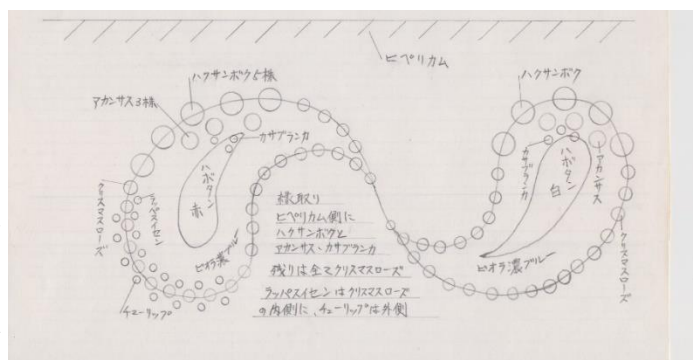 ヒペリカム
ハクサンボク5株
アカンサス3株
カサブランカ
ハボタン
赤
クリスマスローズ
ラッパスイセン
チューリップ
ビオラ濃ブルー
縁取り
ヒペリカム側に
ハクサンボクと
アカンサス・カサブランカ
残りは全てクリスマスローズ
ラッパスイセンはクリスマスローズ
の内側に、チューリップは外側
ハクサンボク
カサブランカ
ハボタン
白
アカンサス
クリスマスローズ
ビオラ濃ブルー